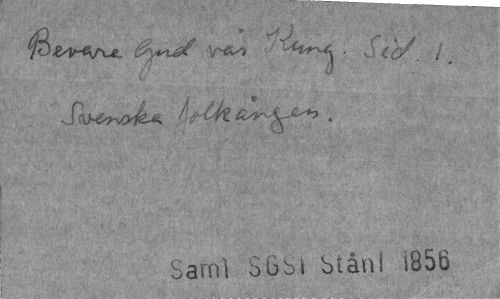 Bevare Gud vår Kung. Sid. 1.
Svenska folksången.
Saml SGS1 Stånl 1856